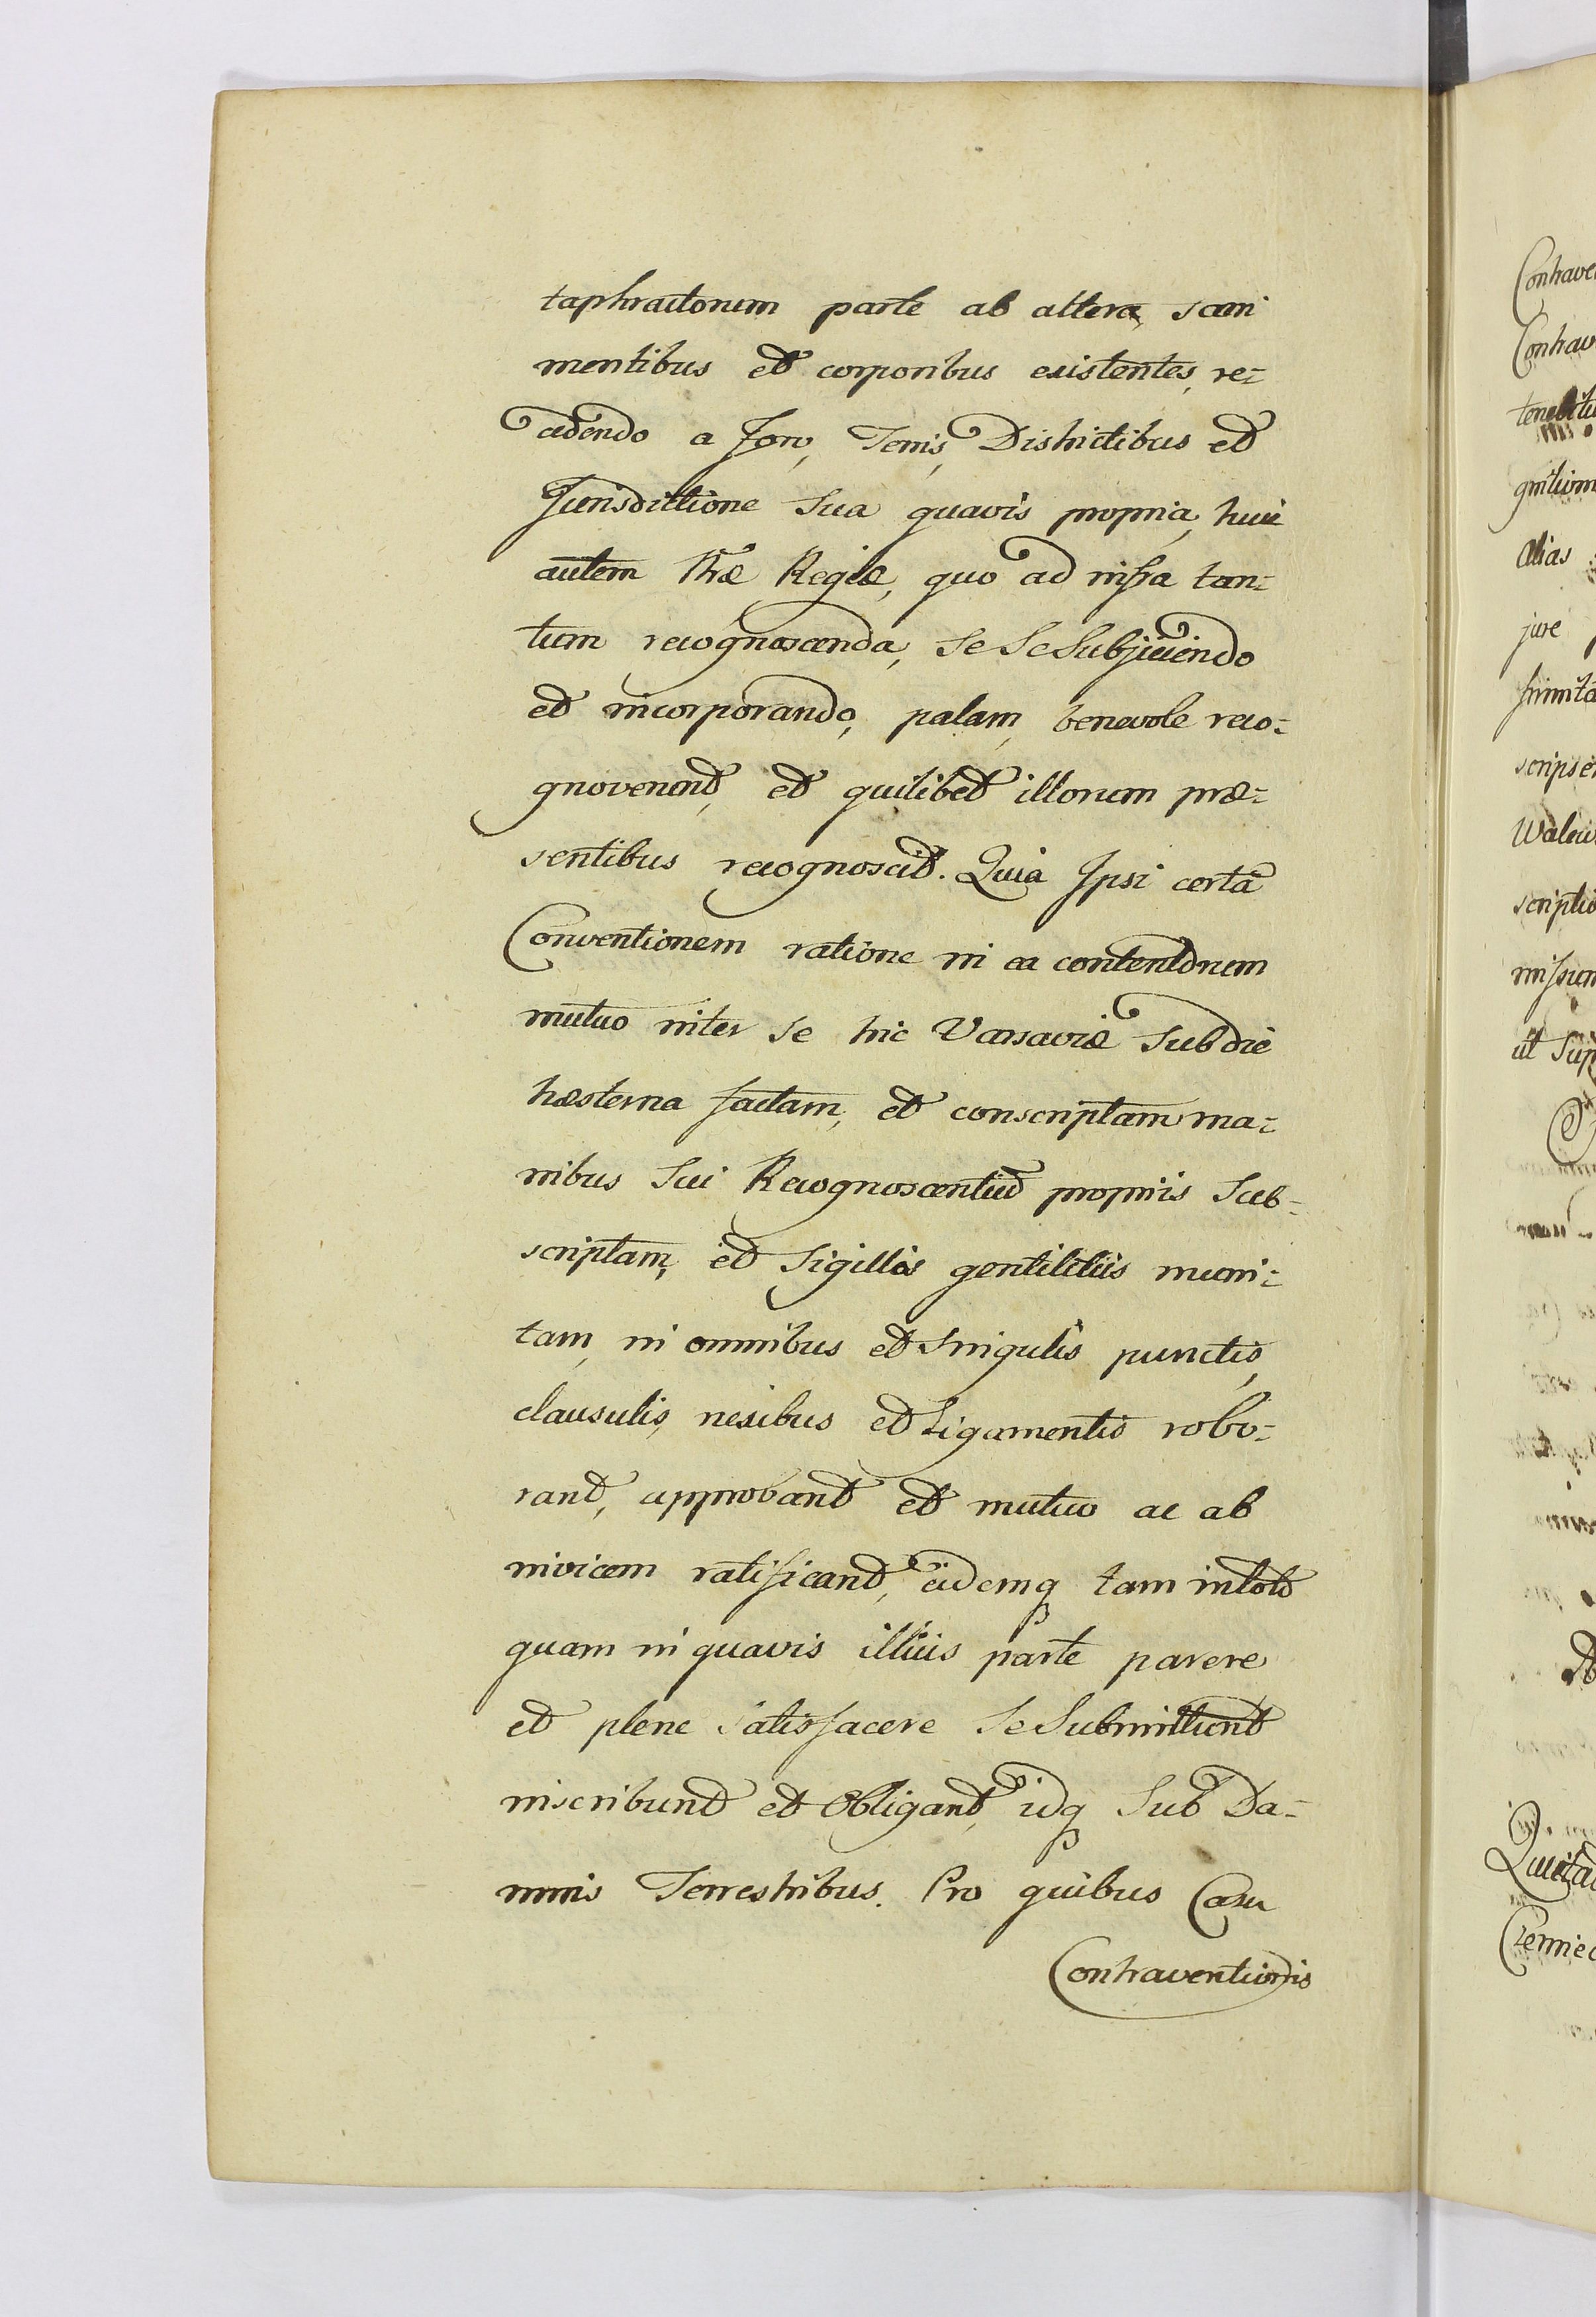 taphractorum parte ab altera, sani
mentibus et corporibus existentes, re=
cedendo a Foro, Terris, Districtibus et
Jurisdictione Sua quavis propria, huic
autem Præ Regiæ, quo ad infra tan=
tum recognoscenda, Se Se Subjiciendo
et incorporando, palam, benevole reco=
gnoverunt, et quilibet illorum præ=
sentibus recognoscit. Quia Ipsi certã
Conventionem ratione in ea contentorum
mutuo inter se hic Varsaviæ Sub die
hæsterna factam, et conscriptam ma=
nibus Sui Recognoscentiũ propriis Sub=
scriptam, et Sigillis gentilitiis muni=
tam, in omnibus et Singulis punctis,
clausulis, nexibus et Ligamentis robo=
rant, approbant et mutuo ac ab
invicem ratificant, eidemq tam in toto
quam in quavis illius parte parere
et plene satisfacere Se Submittunt
inscribunt et Obligant, idq Sub Da=
mnis Terrestribus. Pro quibus Casu
Contraventionis
Contrave
Contrav
tenebitu
gnition
alias
jure
scripse
scriptio
missum
ut Sup